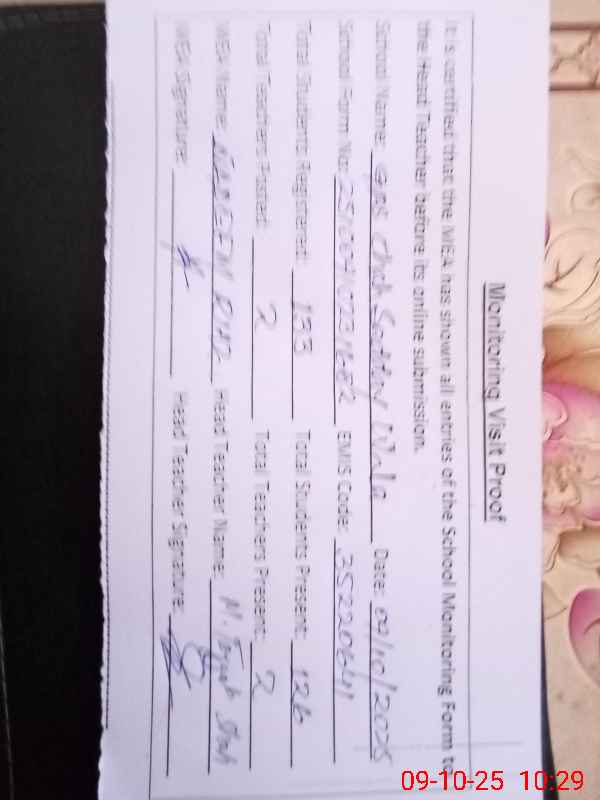 Monitoring Visit Proof
It is certified that the MEA has shown all entries of the School Monitoring Form to
the Head Teacher before its online submission.
School Name: GPS Chak Wala Date: 09/10/2025
School Form No: EMIS Code: 35220641
Total Students Registered: 133 Total Students Present: 126
Total Teachers Posted: 2 Total Teachers Present: 2
MEA Name: NADEEM Head Teacher Name: M. Shah
MEA Signature: Head Teacher Signature:
09-10-25 10:29